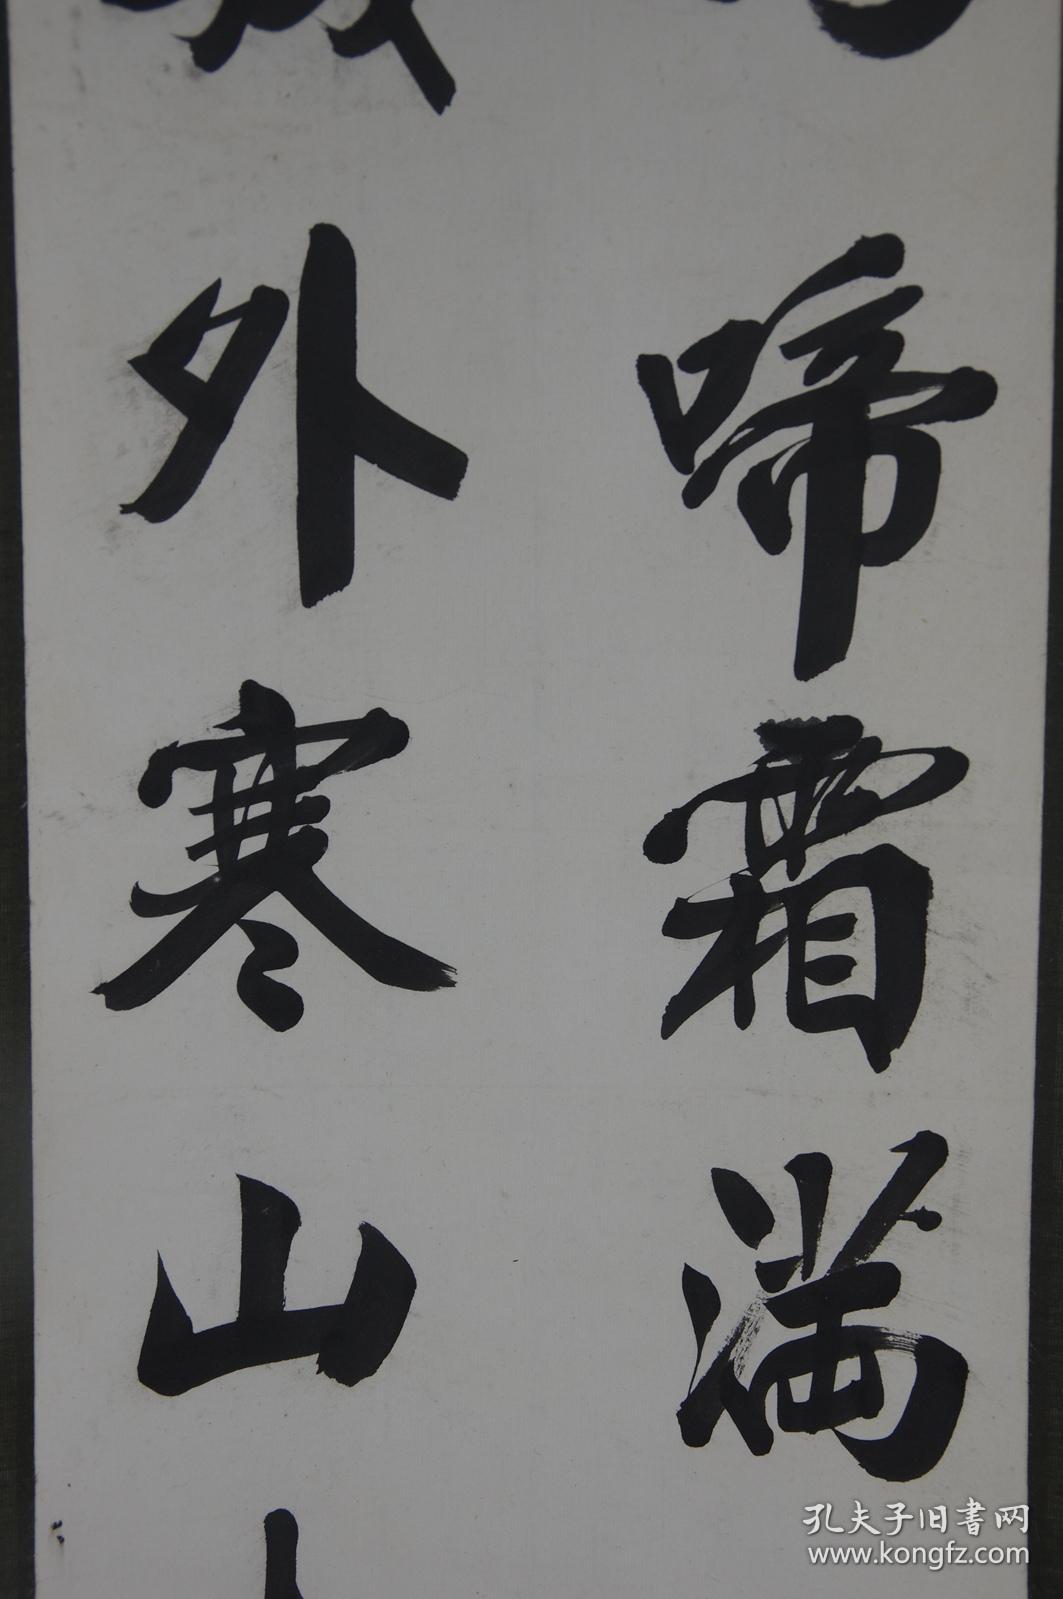 啼霜満
城外寒山
孔夫子旧書网
www.kongfz.com